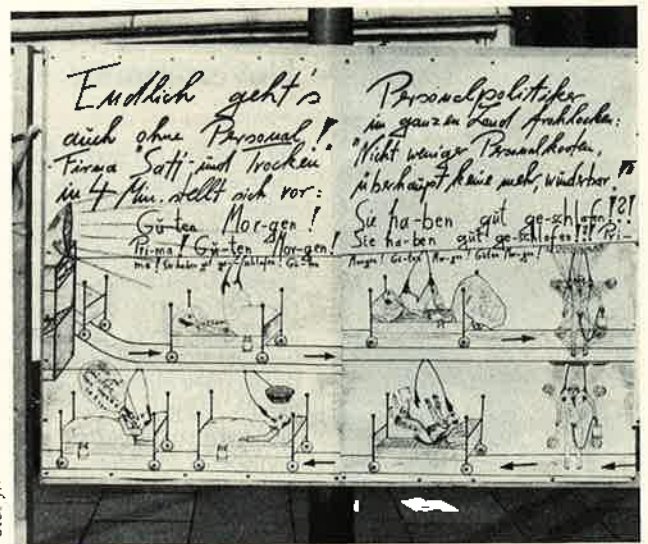 Endlich geht's
auch ohne Personal!
Firma "Satt- und Trocken
in 4 Min. stellt sich vor:
Gü-ten Mor-gen!
Pri-ma! Gü-ten Mor-gen!
ma! Sie haben gut ge-schlafen! Gü-ten
Personalpolitiker
im ganzen Land frohlocken:
"Nicht weniger Personalkosten,
überhaupt keine mehr, wunderbar!"
Sie ha-ben güt ge-schlafen!?!
Sie ha-ben güt ge-schlafen!!! Pri-
Morgen! Gü-ten Mor-gen! Güten Mor-gen!